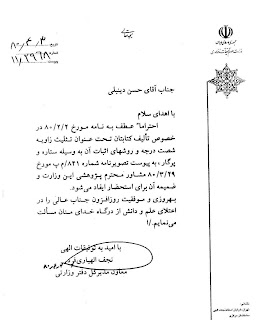 بسمه تعالی
۸۰/۴/۳
جناب آقای حسن دینبلی
با اهدای سلام
احتراما" عطف به نامه مورخ ۸۰/۲/۲ در
خصوص تألیف کتابتان تحت عنوان تثلیث زاویه
شصت درجه و روشهای اثبات آن به وسیله ستاره و
پرگار، به پیوست تصویرنامه شماره ۸۳۱/م پ مورخ
۸۰/۳/۲۹ مشاور محترم پژوهشی این وزارت و
ضمیمه آن برای استحضار ایفاد می‌شود.
بهروزی و موفقیت روزافزون جناب عالی را در
اعتلای علم و دانش از درگاه خدای منان مسألت
می‌نمایم./
با امید به توفیقات الهی
نجف الهیاری
معاون مدیرکل دفتر وزارتی